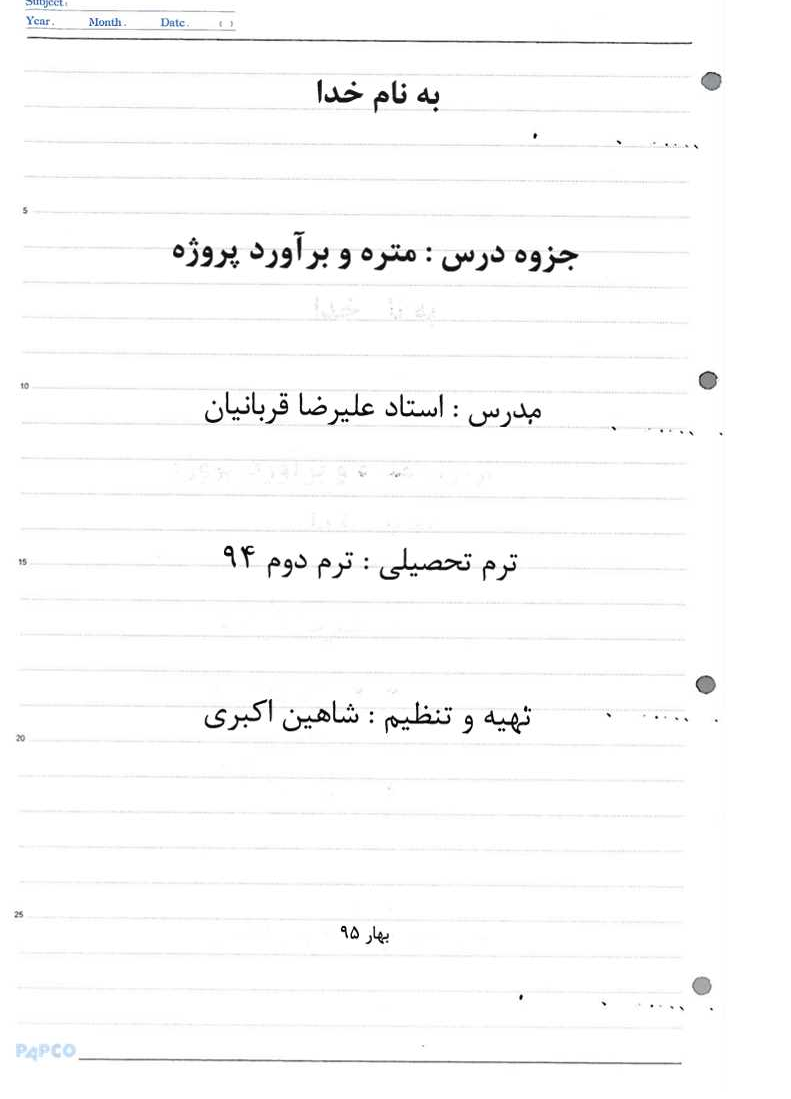 Subject:
Year. Month. Date. ( )
به نام خدا
5
جزوه درس : متره و برآورد پروژه
10
مدرس : استاد علیرضا قربانیان
15
ترم تحصیلی : ترم دوم ۹۴
تهیه و تنظیم : شاهین اکبری
20
25
بهار ۹۵
PAPCO